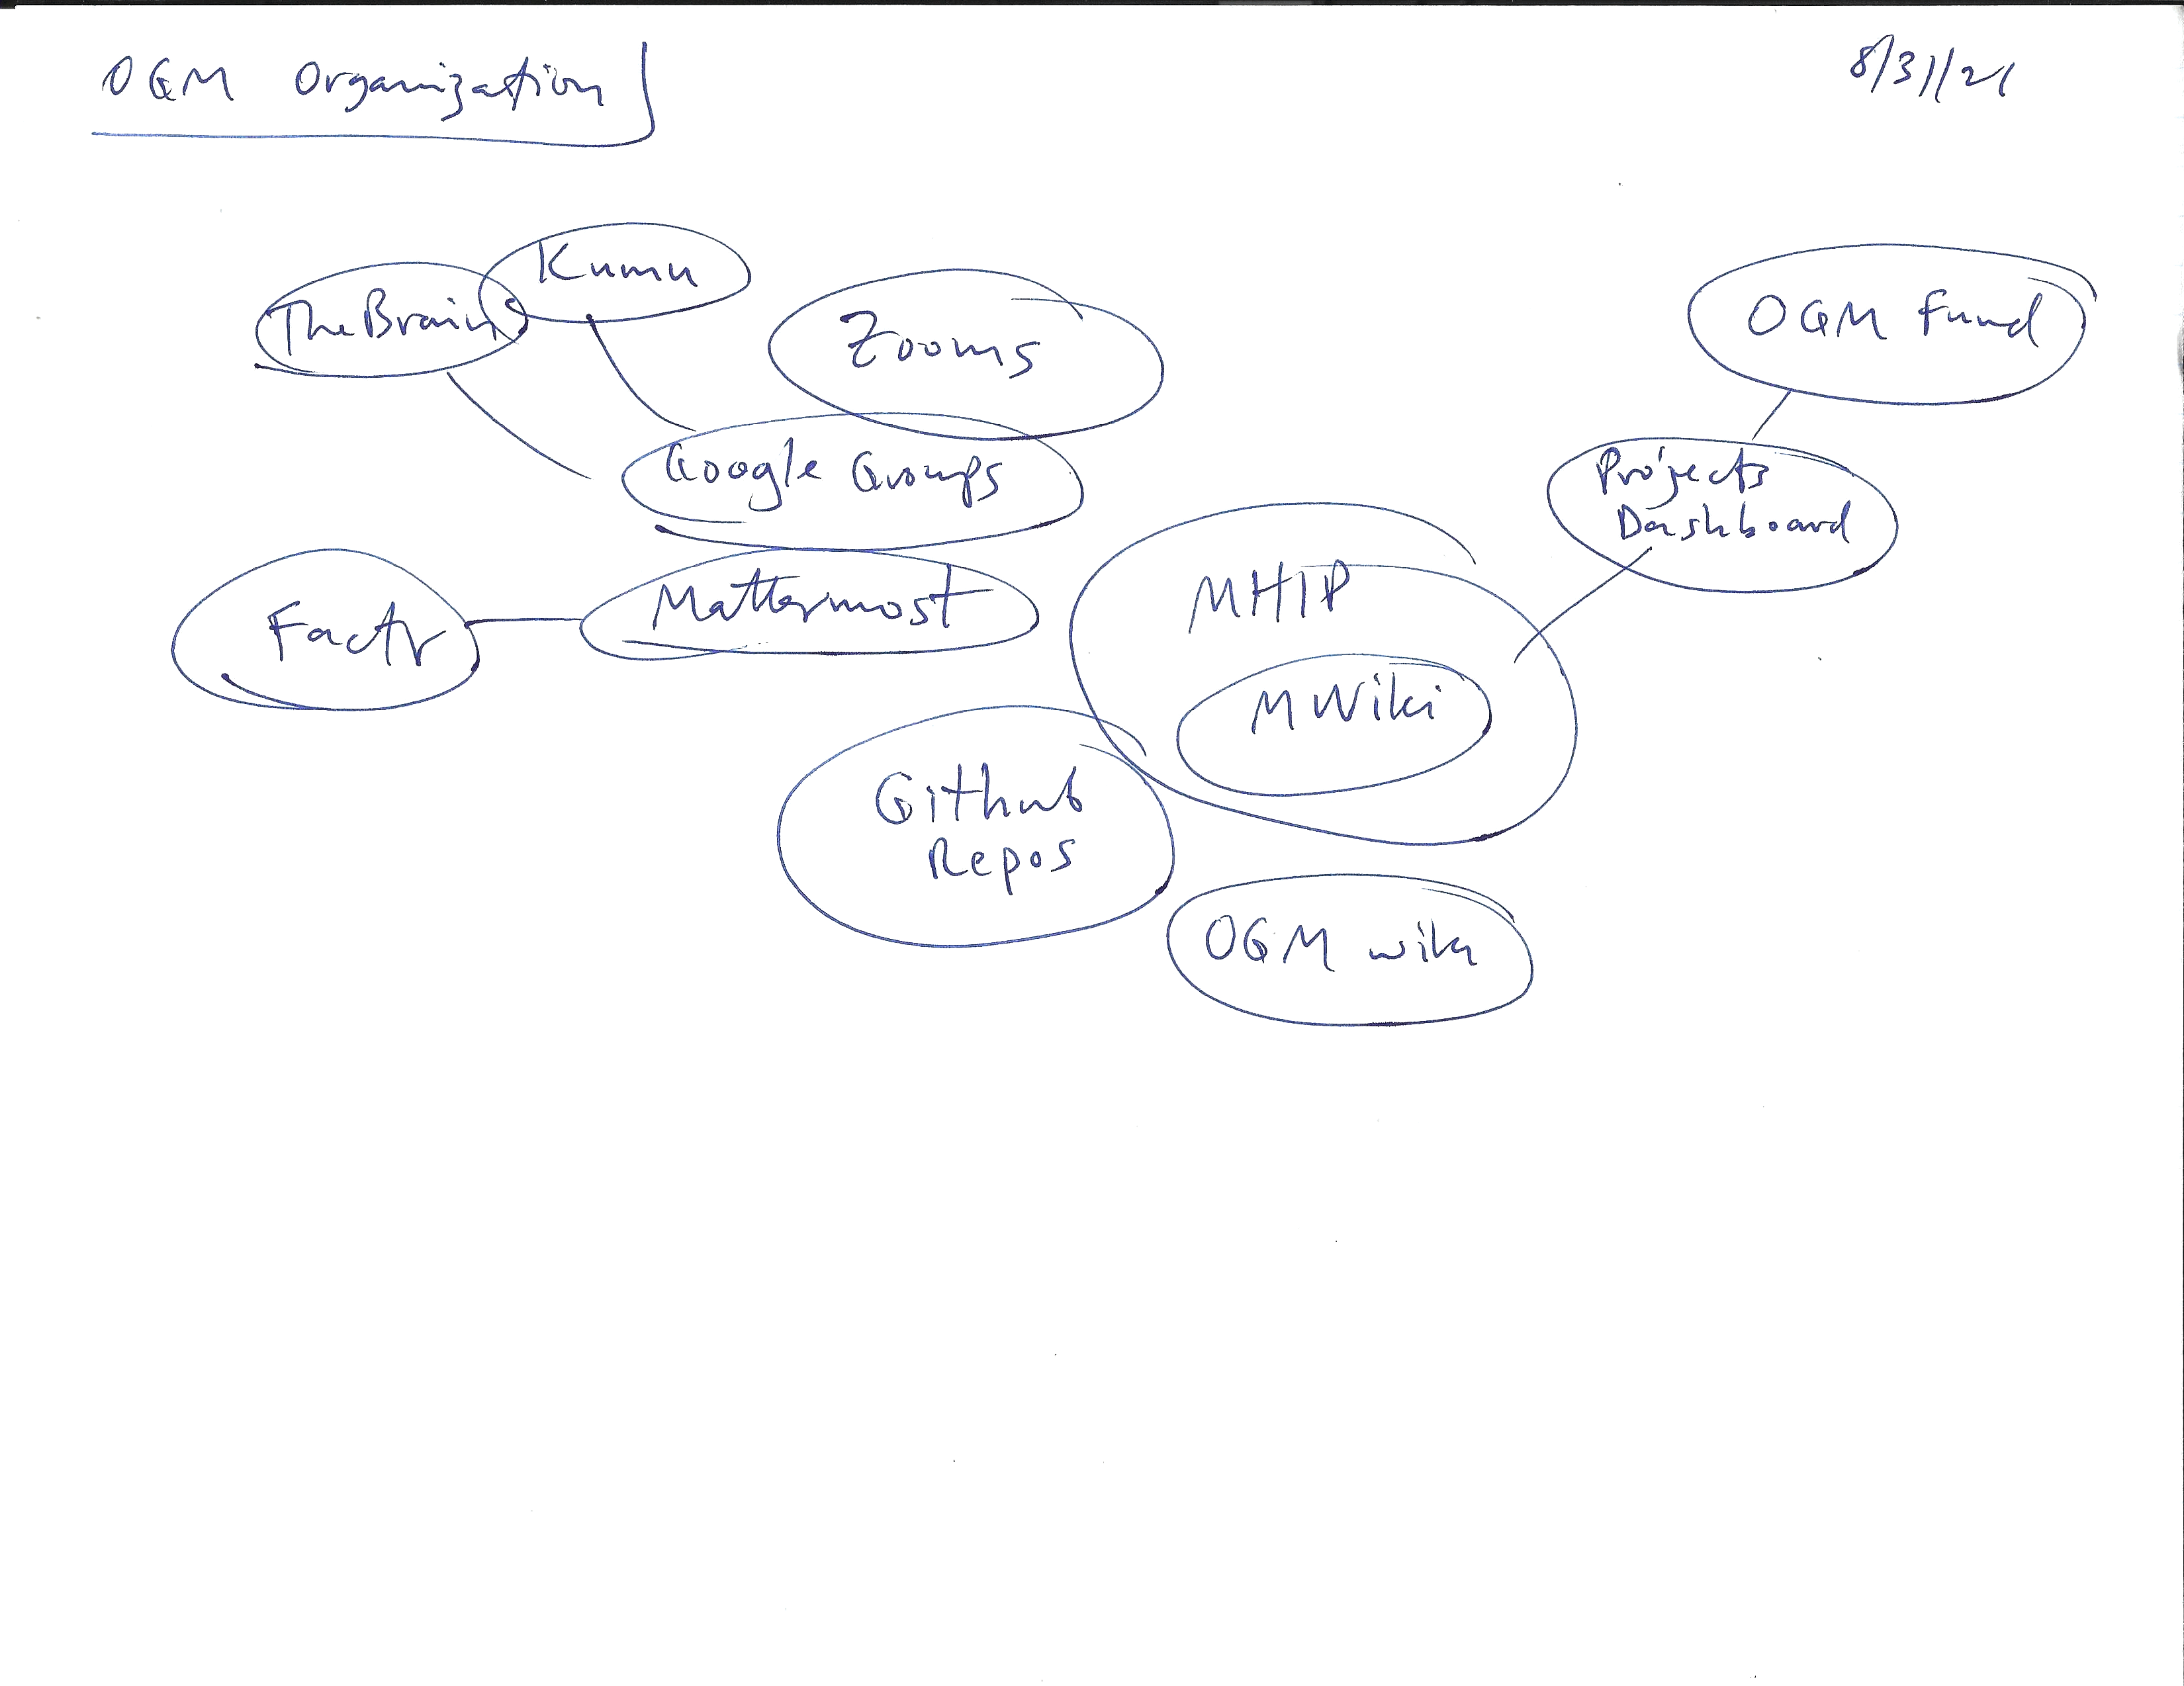 OGM Organization
8/31/21
Kumu
TheBrain
Zooms
OGM Fund
Google Groups
Projects
Dashboard
MHIP
Mattermost
Factr
MWiki
Github
Repos
OGM wiki